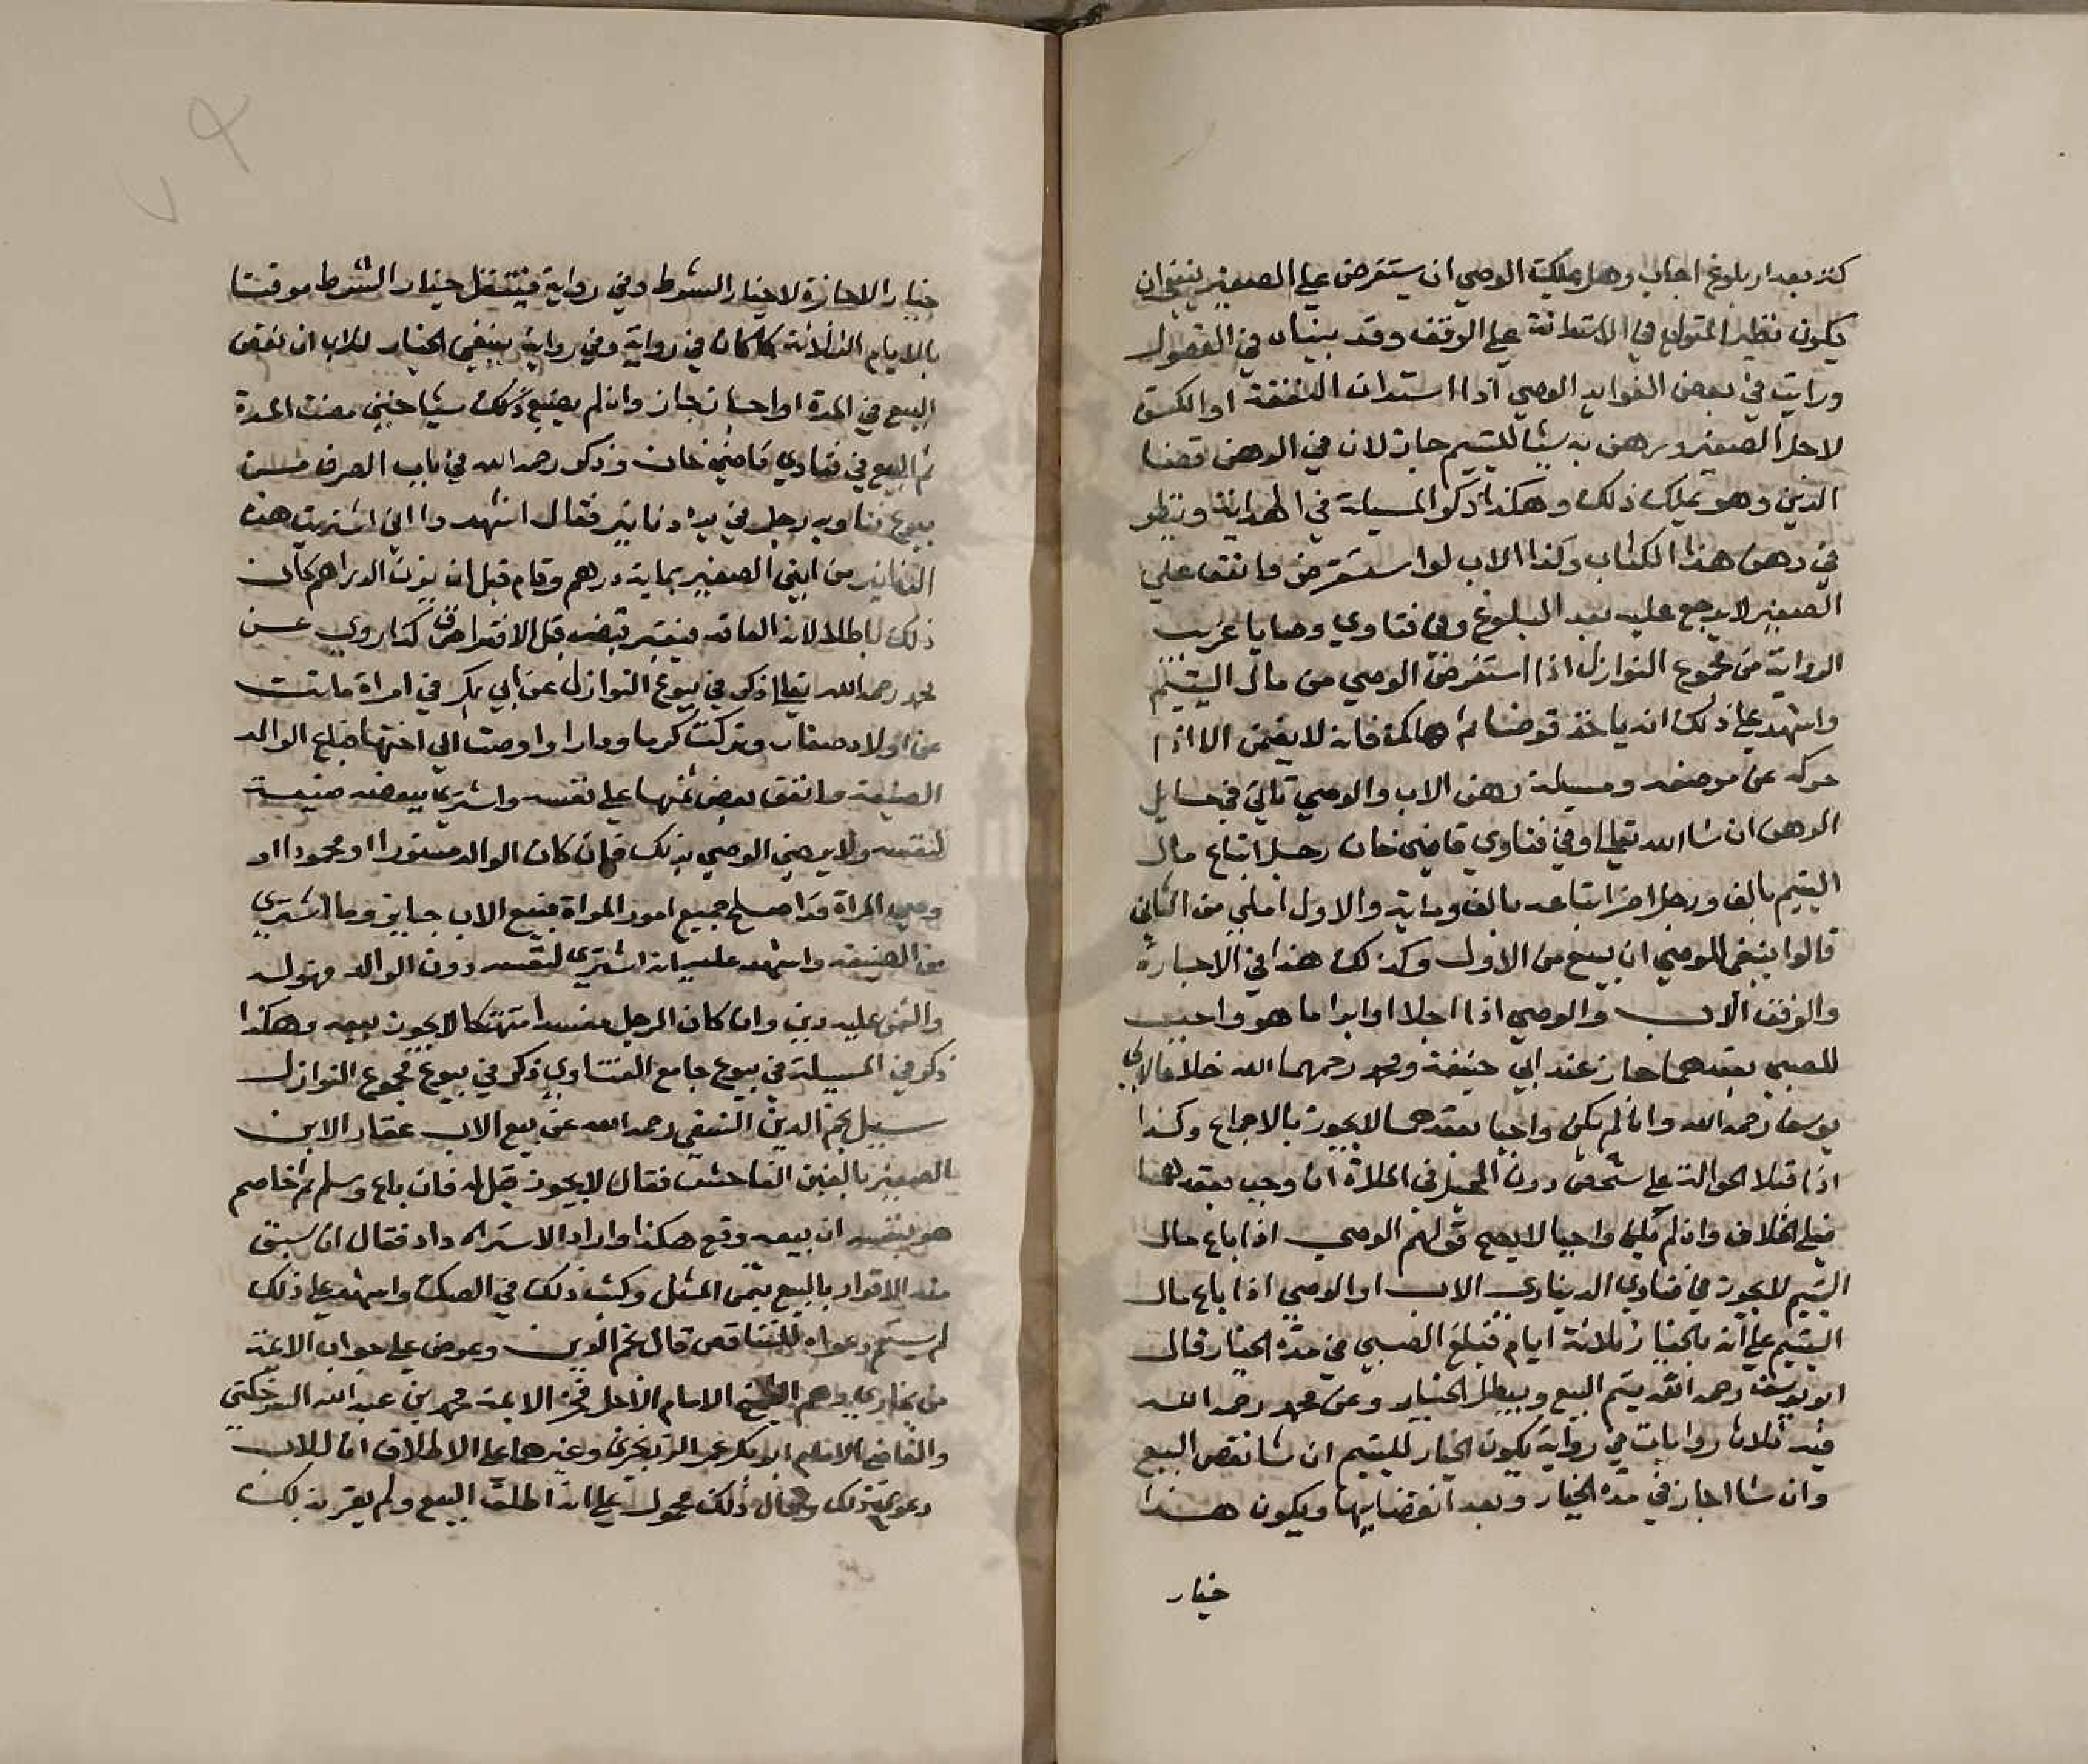 كذ بعد ار بلوغ اجاب وهل يملك الوصي ان يستقرض على الصغير ينبغي ان
يكون نظير المتولي في الاستدانة على الوقف وقد بيناه في الفصول
ورايت في بعض الفوايد الوصي اذا استدان النفقة او الكسوة
لاجل الصغير ورهن به شيا لليتيم جاز لان في الرهن قضا
الدين وهو يملك ذلك وهكذا ذكر المسيلة في الهداية وينظر
في رهن هذا الكتاب وكذا الاب لو استقرض وانفق على
الصغير لا يرجع عليه بعد البلوغ وفي فتاوي وصايا غريب
الرواية من مجموع النوازل اذا استقرض الوصي من مال اليتيم
واشهد على ذلك انه ياخذ قرضا ثم هلك فانه لا يضمن الا اذا
حركه عن موضعه ومسيلة رهن الاب والوصي تاتي في مسايل
الرهن ان شا الله تعالى وفي فتاوي قاضي خان رجل ابتاع مال
اليتيم بالف ورجل اخر ابتاعه بالف وماية والاول املى من الثاني
قالوا ينبغي للوصي ان يبيع من الاول وكذلك هذا في الاجارة
والوقف الاب والوصي اذا اجلا او ابرا ما هو واجب
للصبي بعقدهما جاز عند ابي حنيفة ومحمد رحمهما الله خلافا لابي
يوسف رحمه الله وان لم يكن واجبا بعقدهما لا يجوز بالاجماع وكذا
اذا قبلا الحوالة على شخص دون المحيل في الملاة ان وجب بعقدهما
فعلى الخلاف وان لم يكن واجبا لا يصح قولهم الوصي اذا باع مال
اليتيم لا يجوز في فتاوي الديناري الاب او الوصي اذا باع مال
اليتيم على انه بالخيار ثلاثة ايام فبلغ الصبي في مدة الخيار قال
ابو يوسف رحمه الله يتم البيع ويبطل الخيار وعن محمد رحمه الله
فيه ثلاث روايات في رواية يكون الخيار لليتيم ان شا نقص البيع
وان شا اجاز في مدة الخيار وبعد انقضايها ويكون هذا
خيار
خيار الاجازة لا خيار الشرط وفي رواية فينتقل خيار الشرط موقتا
بالايام الثلاثة كما كان في رواية وفي رواية ينبغي الخيار للاب ان نقض
البيع في المدة او اجاز جاز وان لم يصنع ذلك شيا حتى مضت المدة
تم البيع في فتاوي قاضي خان وذكر رحمه الله في باب الصرف من
بيوع فتاويه رجل في يده دنانير فقال اشهدوا اني اشتريت هذه
الدنانير من ابني الصغير بماية درهم وقام قبل ان يزن الدراهم كان
ذلك باطلا لانه العاقد فيعتبر قبضه قبل الافتراق كذا روي عن
محمد رحمه الله تعالى ذكر في بيوع النوازل عن ابي بكر في امراة ماتت
عن اولاد صغار وتركت كرما ودارا واوصت الى اختها فباع الوالد
الضيعة وانفق بعض ثمنها على نفسه واشترى ببعضه ضيعة
لنفسه ولا يرضى الوصي بذلك فان كان الوالد مستورا او محمودا او
وصي المراة قد اصلح جميع امور المراة فبيع الاب جايز وما اشترى
من الضيعة واشهد عليه انه اشترى لنفسه دون الوالد فهو له
والثمن عليه دين وان كان الرجل مفسدا متهتكا لا يجوز بيعه وهكذا
ذكر في المسيلة في بيوع جامع الفتاوي ذكر في بيوع مجموع النوازل
سيل نجم الدين النسفي رحمه الله عن بيع الاب عقار الابن
الصغير بالغبن الفاحش فقال لا يجوز قيل له فان باع وسلم ثم خاصم
هو بنفسه ان بيعه وقع هكذا واراد الاسترداد فقال ان سبق
منه الاقرار بالبيع بثمن المثل وكتب ذلك في الصك واشهد على ذلك
لم يستمع دعواه للتناقض قال نجم الدين وعرض علي جواب الايمة
من بخارى وهم الشيخ الامام الاجل فخر الايمة محمد بن عبد الله السرخكتي
والقاضي الامام ابو بكر عمر الزرنجري وغيرهما على الاطلاق ان للاب
دعوى ذلك وقال ذلك محمول على انه اطلق البيع ولم يقر بذلك